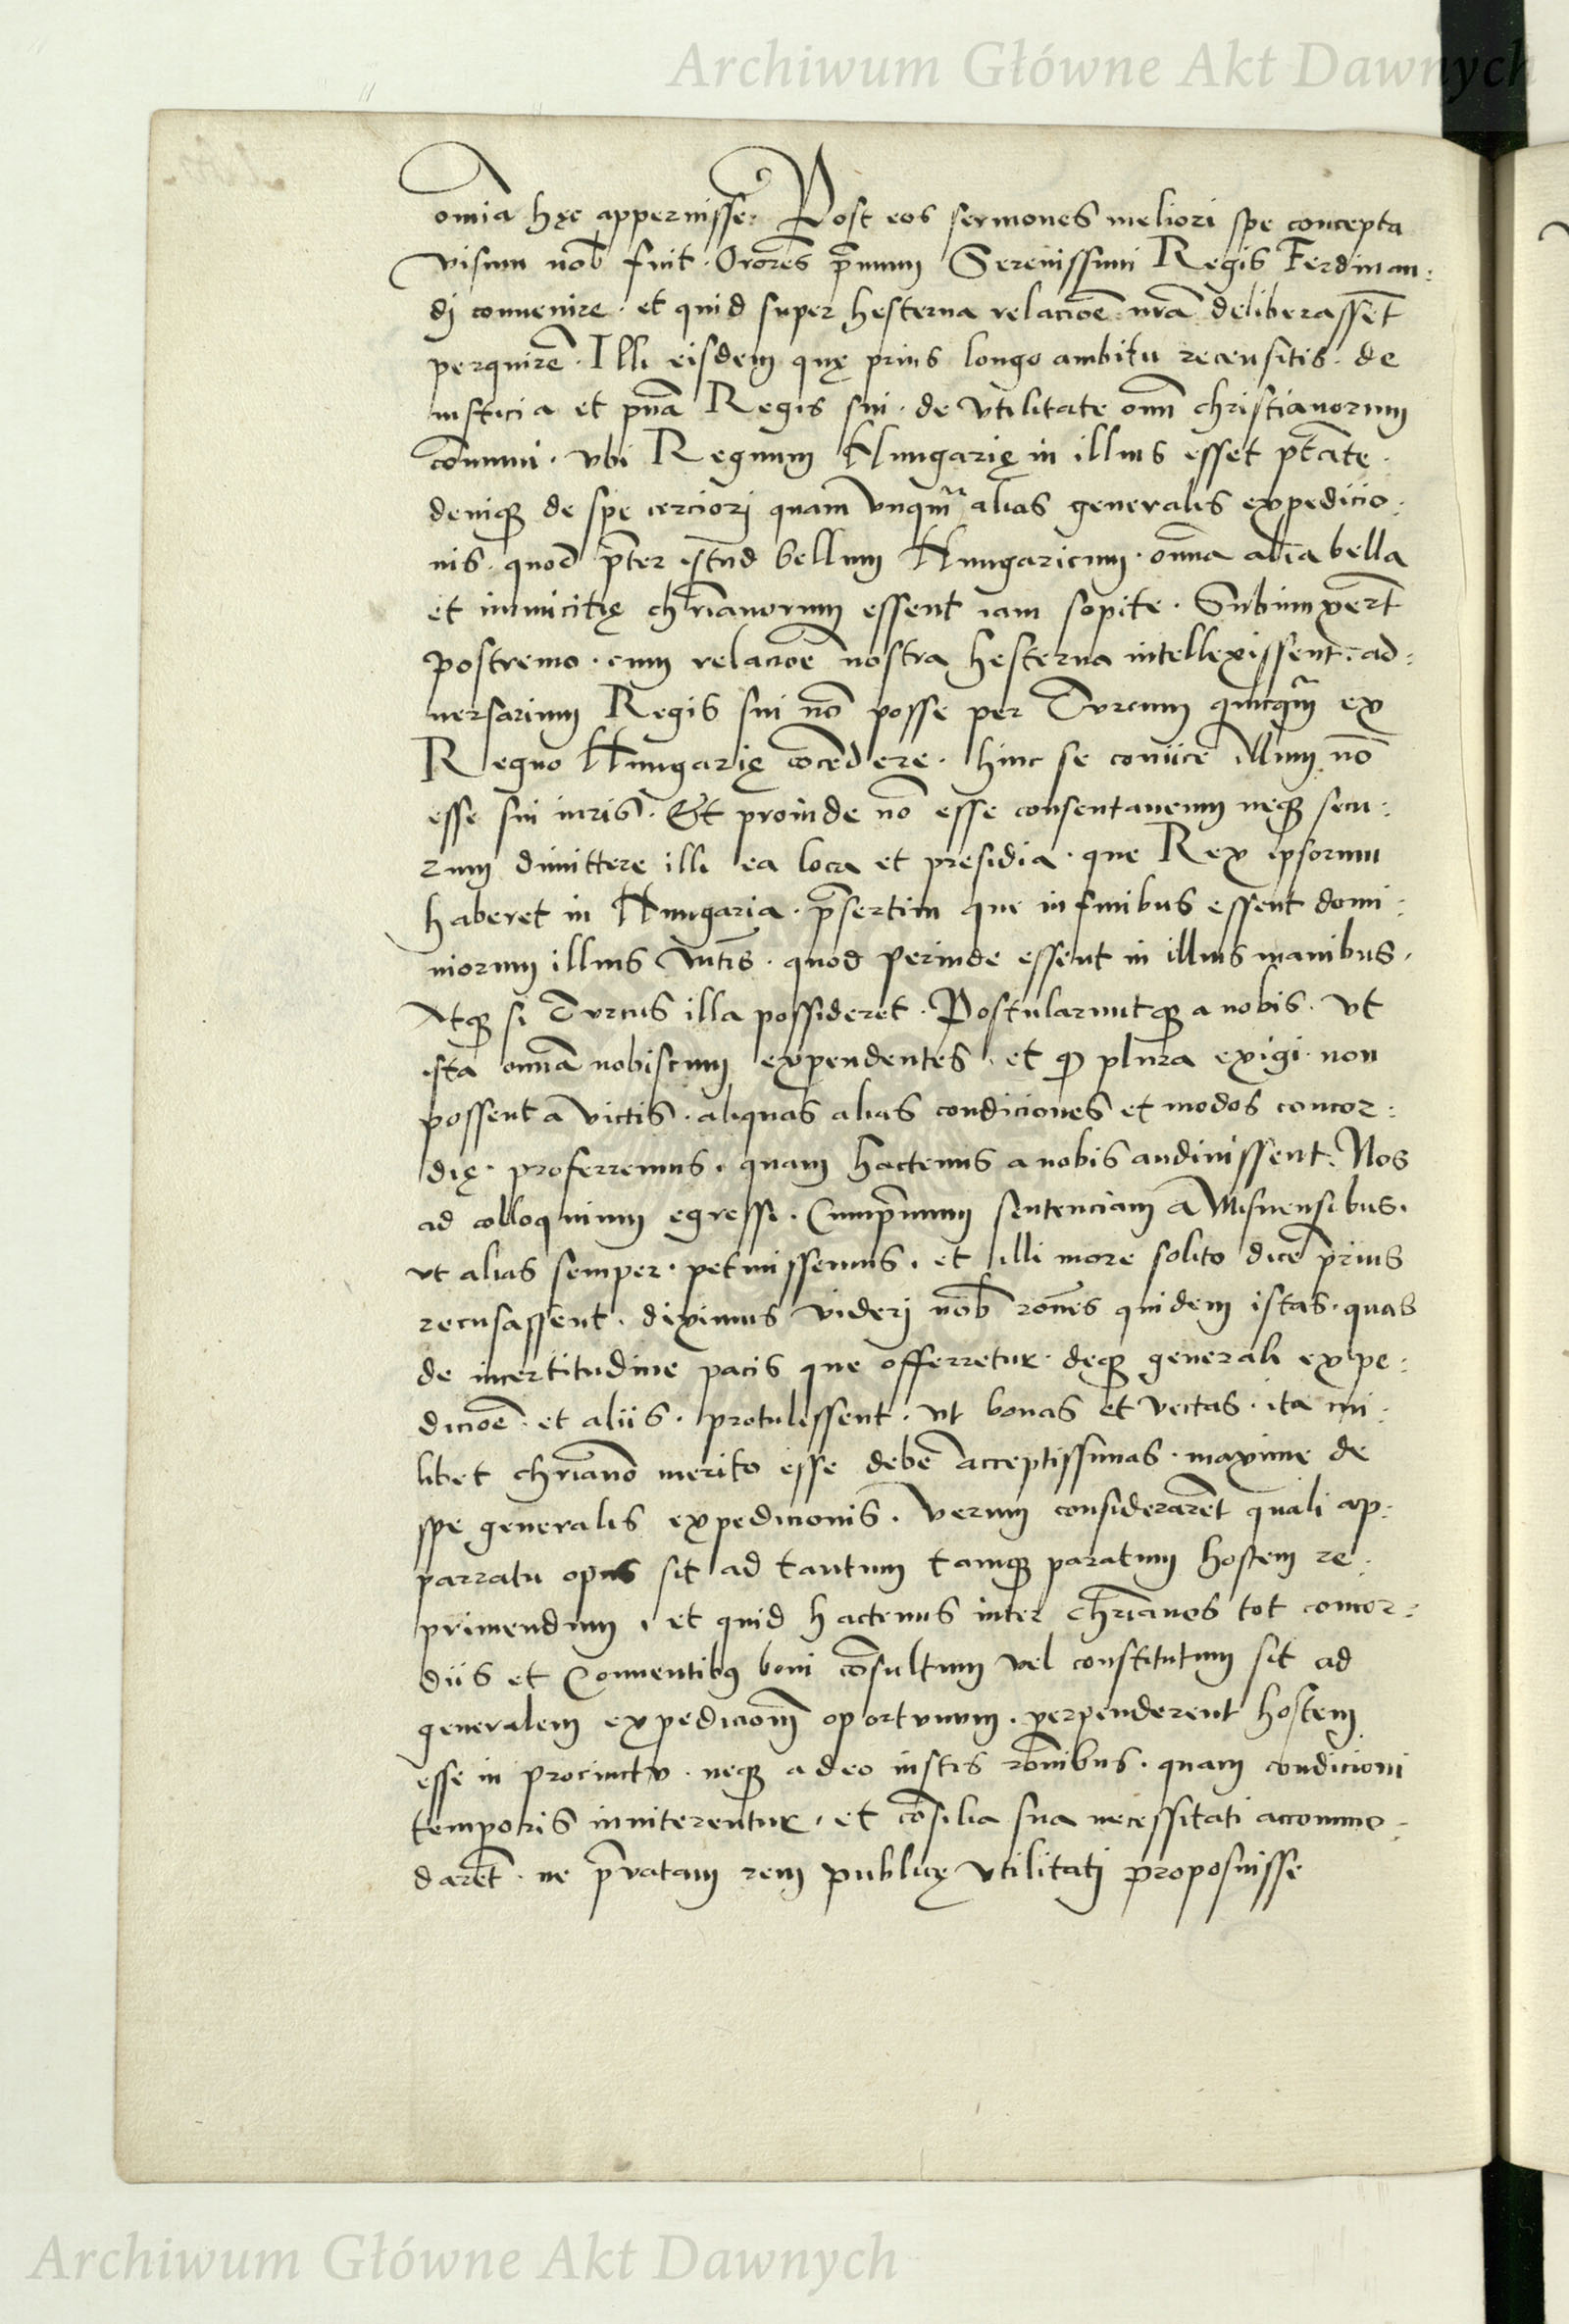 Archiwum Główne Akt Dawnych
om̄ia hęc apperuisse: Post eos sermones meliori spe concepta
visum nob̄ fuit. Orōres pr̄imum Serenissimi Regis Ferdinan:
dj conuenire. et quid super hesterna relacioe͞ nr̄a deliberassēt
perquirē. Illi eisdem quę prius longo ambitu recensitis. de
iusticia et pn̄a Regis sui. de vtilitate om̄i christianorum
cōmuni. vbi Regnum Hungarię in illius esset ptāte.
deniqꝫ de spe cerciorj quam vnqm̄ alias generalis expedicio:
nis. quod pr̄ter istud bellum Hungaricum. om̄ia alia bella
et inimicitię chr̄ianorum essent iam sopite. Subiunxerūt
postremo. cum relacioē nostra hesterna intellexissent. ad:
uersarium Regis sui nō posse per Turcum quicqm̄ ex
Regno Hungarię cōcedere. hinc se coniicē illum nō
esse sui iuris. Et proinde nō esse consentaneum neqꝫ secu:
rum dimittere illi ea loca et presidia. que Rex ipsorum
haberet in Hungaria. pr̄sertim que in finibus essent domi:
niorum illius. quod perinde essent in illius manibus.
Atqꝫ si Turcus illa possideret. Postularuntqꝫ a nobis. vt
ista om̄ia nobiscum expendentes. et ꝙ plura exigi non
possent a victis. aliquas alias condiciones et modos concor:
dię. proferremus. quam hactenus a nobis audiuissent. Nos
ad colloquium egressi. Cumpr̄imum sentenciam a Misnensibus.
vt alias semper. petiuissemus. et illi more solito dicē prius
recusassent. diximus viderj nob̄ rōnes quidem istas. quas
de incertitudine pacis que offerretur. deqꝫ generali expe:
dicioē. et aliis. protulissent. vt bonas et rectas. ita cui:
libet chr̄iano merito esse debē acceptissimas. maxime de
spe generalis expedicionis. Verum considerarēt quali ap:
parratu opus sit ad tantum tamqꝫ paratum hostem re:
primendum. et quid hactenus inter chr̄ianos tot concor:
diis et Conuentibꝰ boni cōsultum vel constitutum sit ad
generalem expedicionē oportunum. perpenderent hostem
esse in procinctu. neqꝫ adeo iustis rōnibus. quam condicioni
temporis inniterentur. et cōsilia sua necessitati accommo:
darēt. ne pr̄iuatam rem publicę vtilitatj proposuisse
Archiwum Główne Akt Dawnych